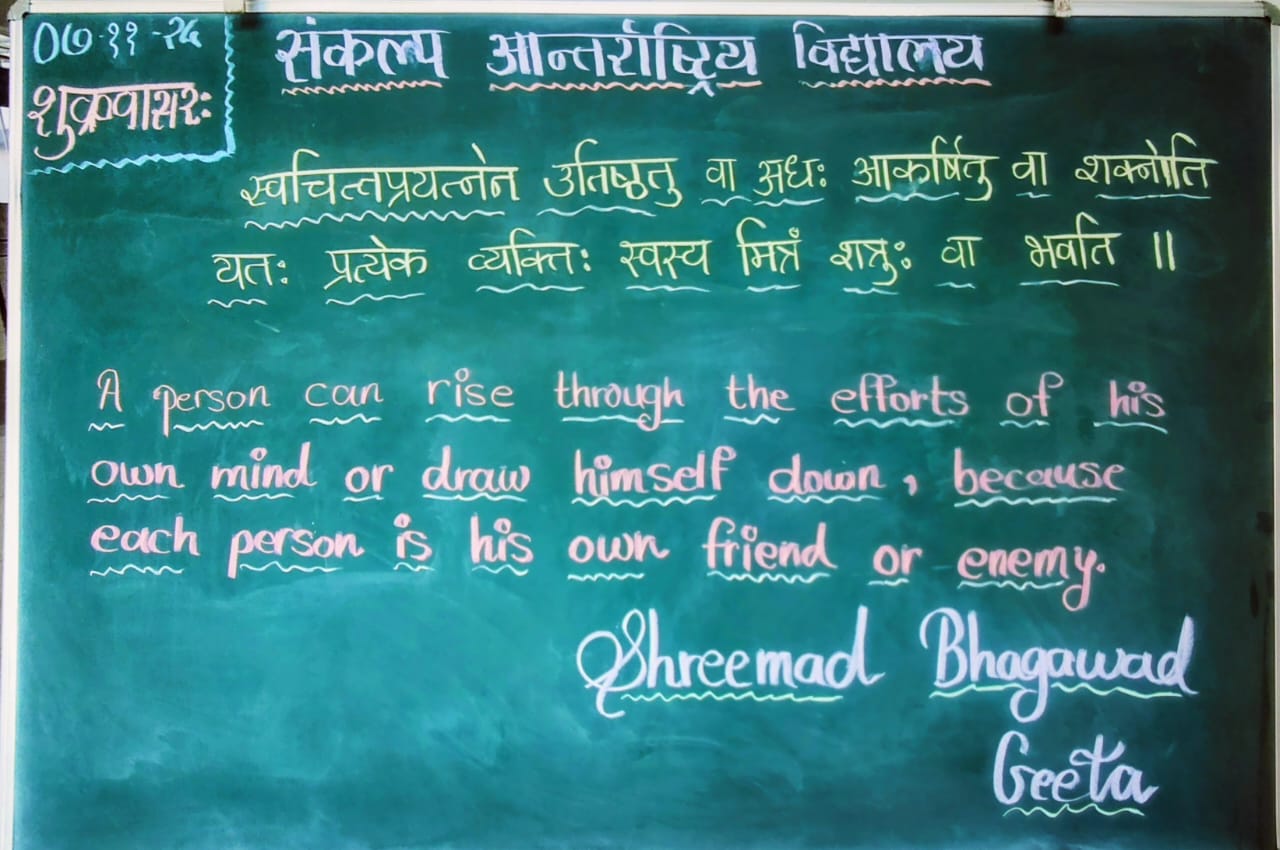 ०७-११-२५
शुक्रवासरः
संकल्प आन्तर्राष्ट्रिय विद्यालय
स्वचित्तप्रयत्नेन उतिष्ठतु वा अधः आकर्षितु वा शक्नोति
यतः प्रत्येक व्यक्तिः स्वस्य मित्रं शत्रुः वा भवति ॥
A person can rise through the efforts of his
own mind or draw himself down, because
each person is his own friend or enemy.
Shreemad Bhagawad
Geeta